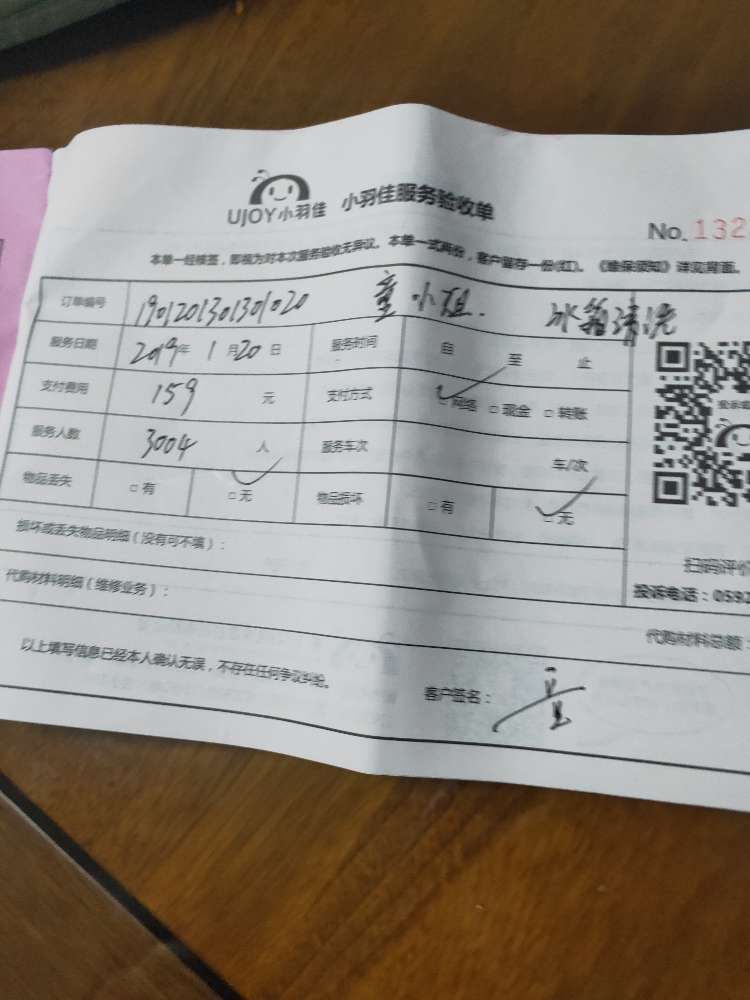 UJOY小羽佳 小羽佳服务验收单
No.132
本单一经核签，即视为对本次服务验收无异议。本单一式两份，客户留存一份(红)。《维保须知》详见背面。
订单编号 190120130131020 童小姐. 冰箱清洗
服务日期 2019年 1月20日 服务时间 自 至 止
支付费用 159 元 支付方式 □网络 □现金 □转账
服务人数 3004 人 服务车次 车/次
物品丢失 □有 □无 物品损坏 □有 □无
损坏或丢失物品明细（没有可不填）：
扫码评价
代购材料明细（维修业务）：
投诉电话：0592
代购材料总额：
以上填写信息已经本人确认无误，不存在任何争议纠纷。
客户签名：